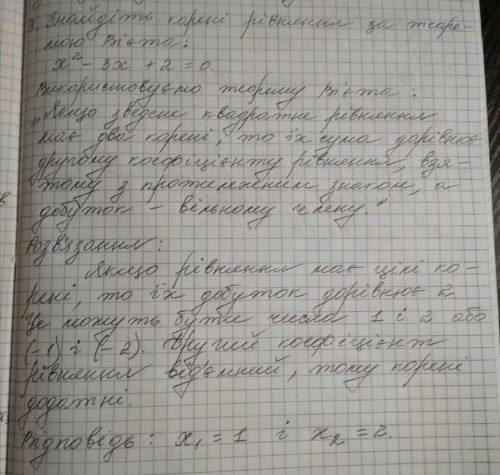 3. Знайдіть корені рівняння за теоре-
мою Вієта:
x² - 3x + 2 = 0
Використовуємо теорему Вієта:
„Якщо зведене квадратне рівняння
має два корені, то їх сума дорівнює
другому коефіцієнту рівняння, взя-
тому з протилежним знаком, а
добуток – вільному члену."
Розв'язання:
Якщо рівняння має цілі ко-
рені, то їх добуток дорівнює 2.
Це можуть бути числа 1 і 2 або
(-1) і (-2). Другий коефіцієнт
рівняння від'ємний, тому корені
додатні.
Відповідь: x₁ = 1 і x₂ = 2.